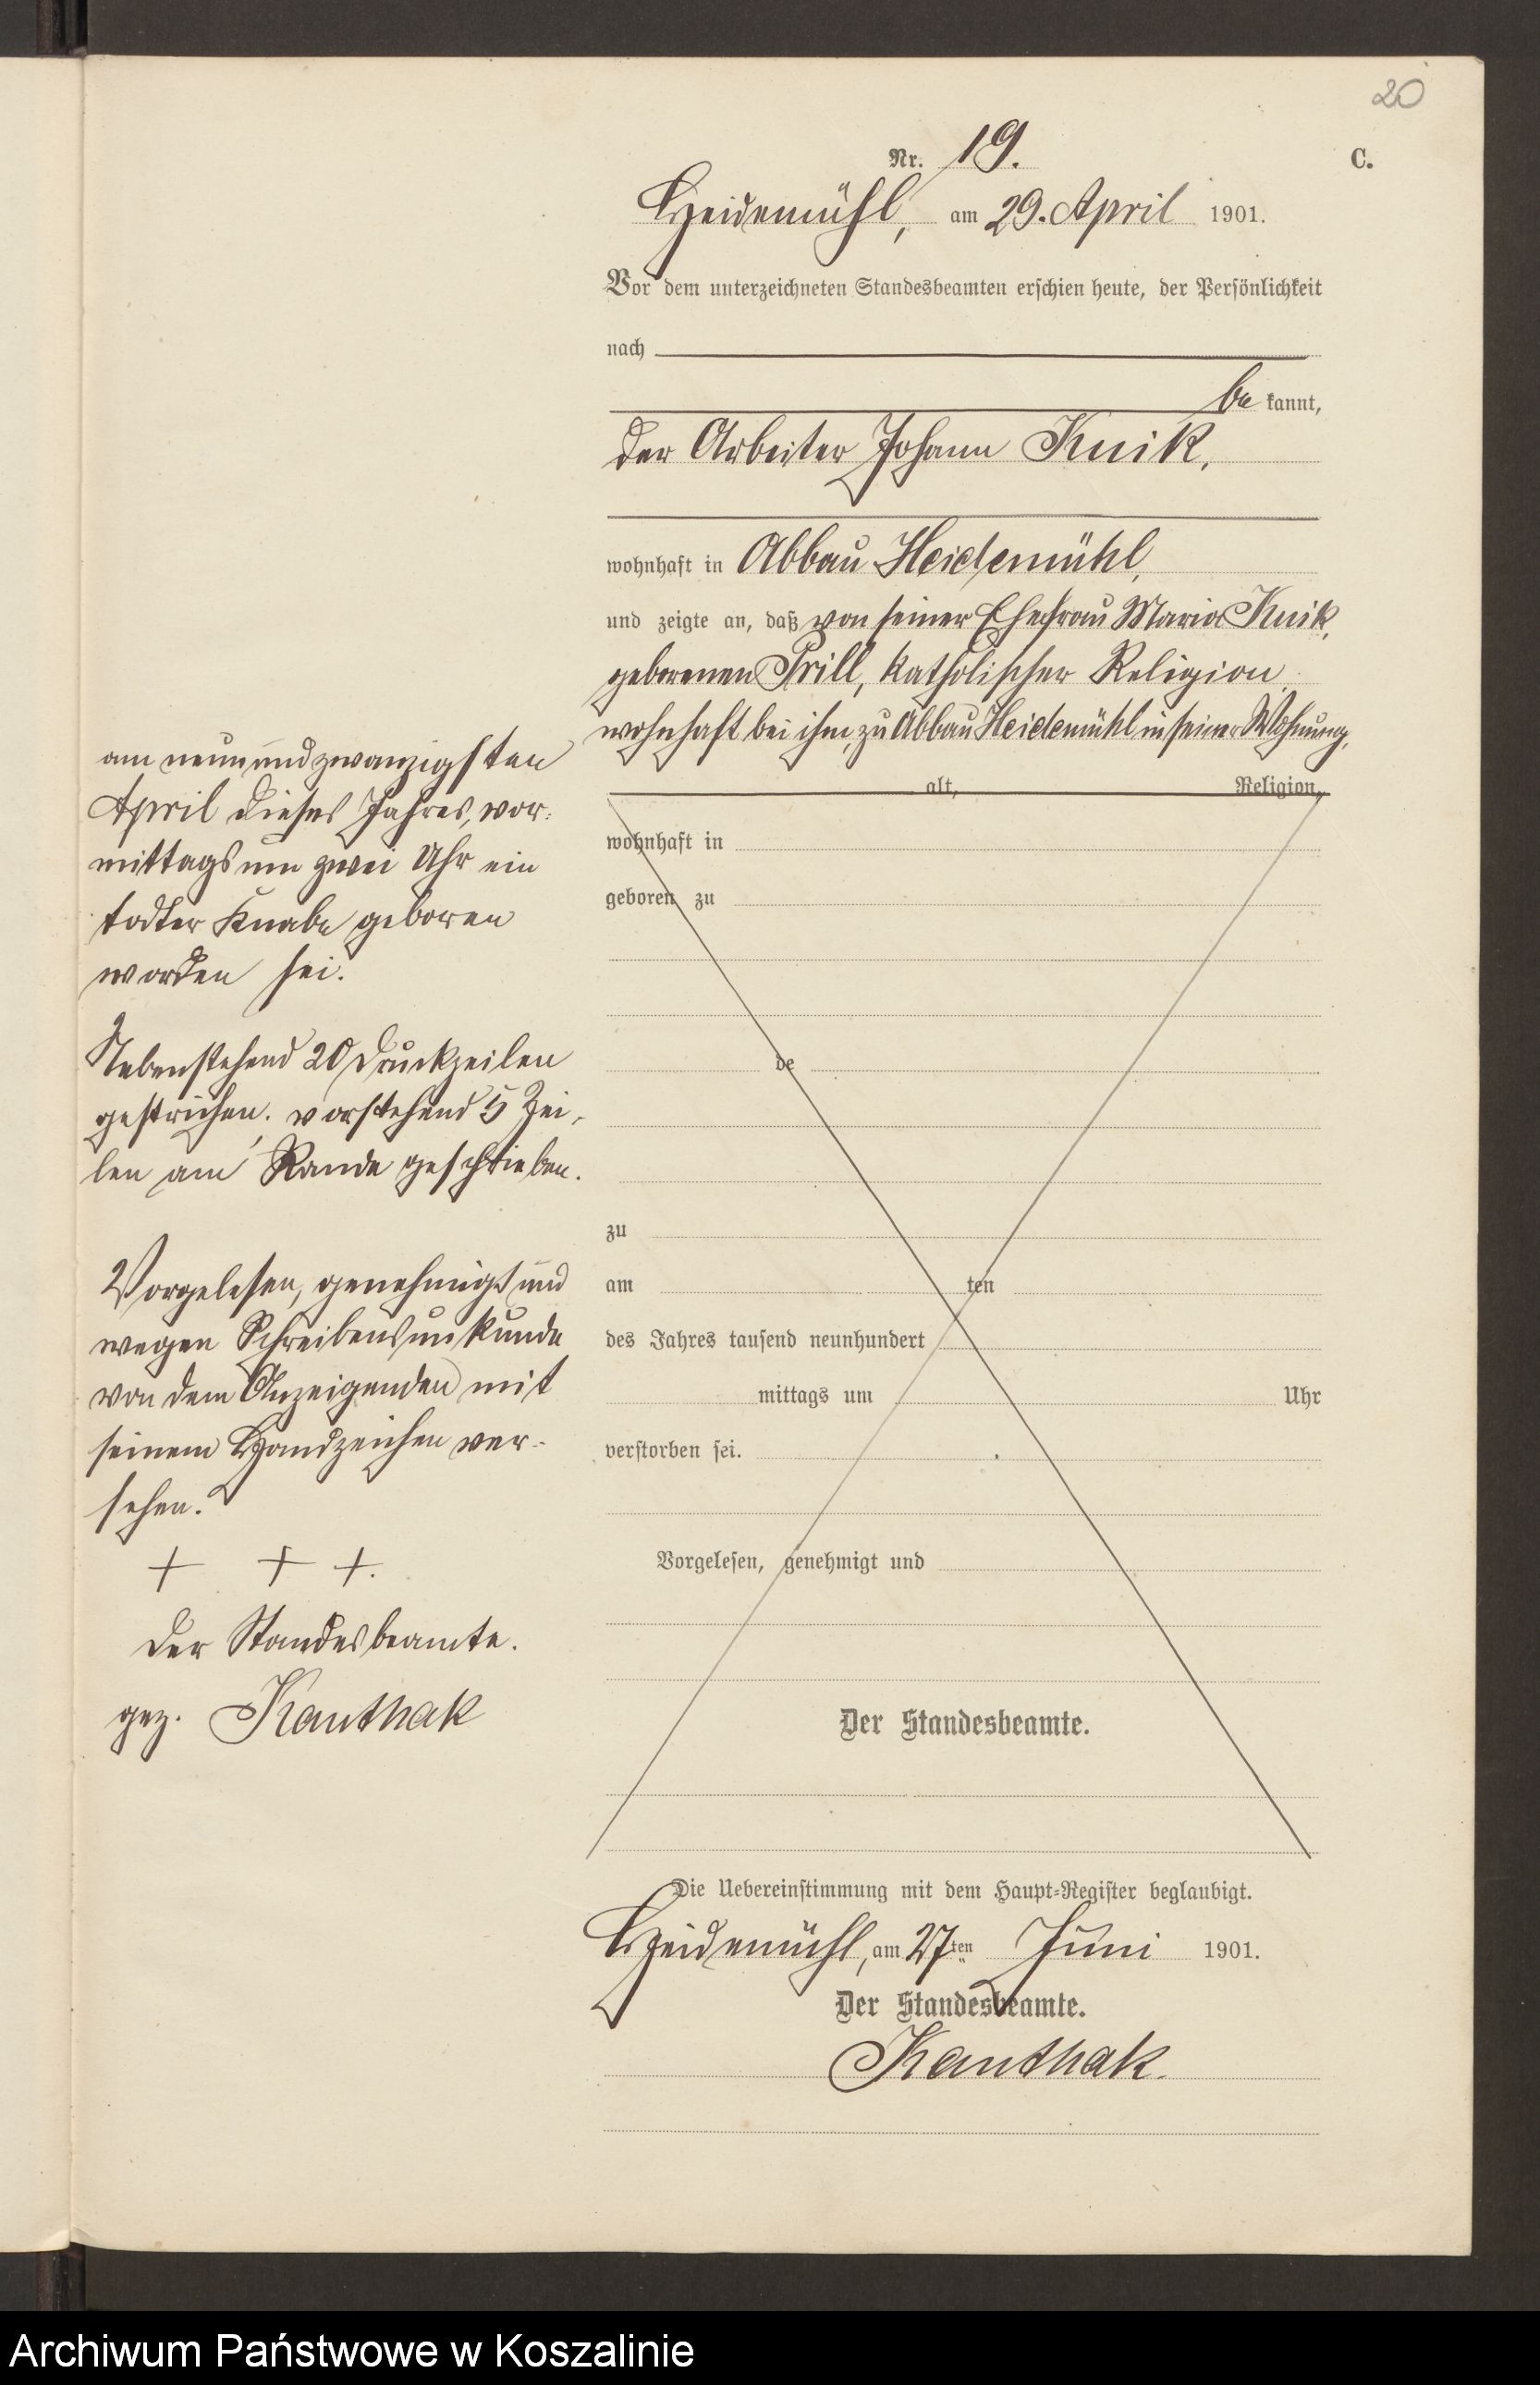 20
Nr. 19.
C.
Heidemühl, am 29. April 1901.
Vor dem unterzeichneten Standesbeamten erschien heute, der Persönlichkeit
nach
be kannt,
der Arbeiter Johann Knik,
wohnhaft in Abbau Heidemühl,
und zeigte an, daß von seiner Ehefrau Maria Knik,
geborenen Prill, katholischer Religion,
wohnhaft bei ihm, zu Abbau Heidemühl in seiner Wohnung,
alt, Religion,
wohnhaft in
geboren zu
de
zu
am ten
des Jahres tausend neunhundert
mittags um Uhr
verstorben sei.
Vorgelesen, genehmigt und
Der Standesbeamte.
am neunundzwanzigsten
April dieses Jahres, vor-
mittags um zwei Uhr ein
todter Knabe geboren
worden sei.
Nebenstehend 20 Druckzeilen
gestrichen, vorstehend 5 Zei-
len am Rande geschrieben.
Vorgelesen, genehmigt und
wegen Schreibensunkunde
von dem Anzeigenden mit
seinem Handzeichen ver-
sehen.
+ + +.
Der Standesbeamte.
gez. Kanthak
Die Uebereinstimmung mit dem Haupt-Register beglaubigt.
Heidemühl, am 27ten Juni 1901.
Der Standesbeamte.
Kanthak.
Archiwum Państwowe w Koszalinie